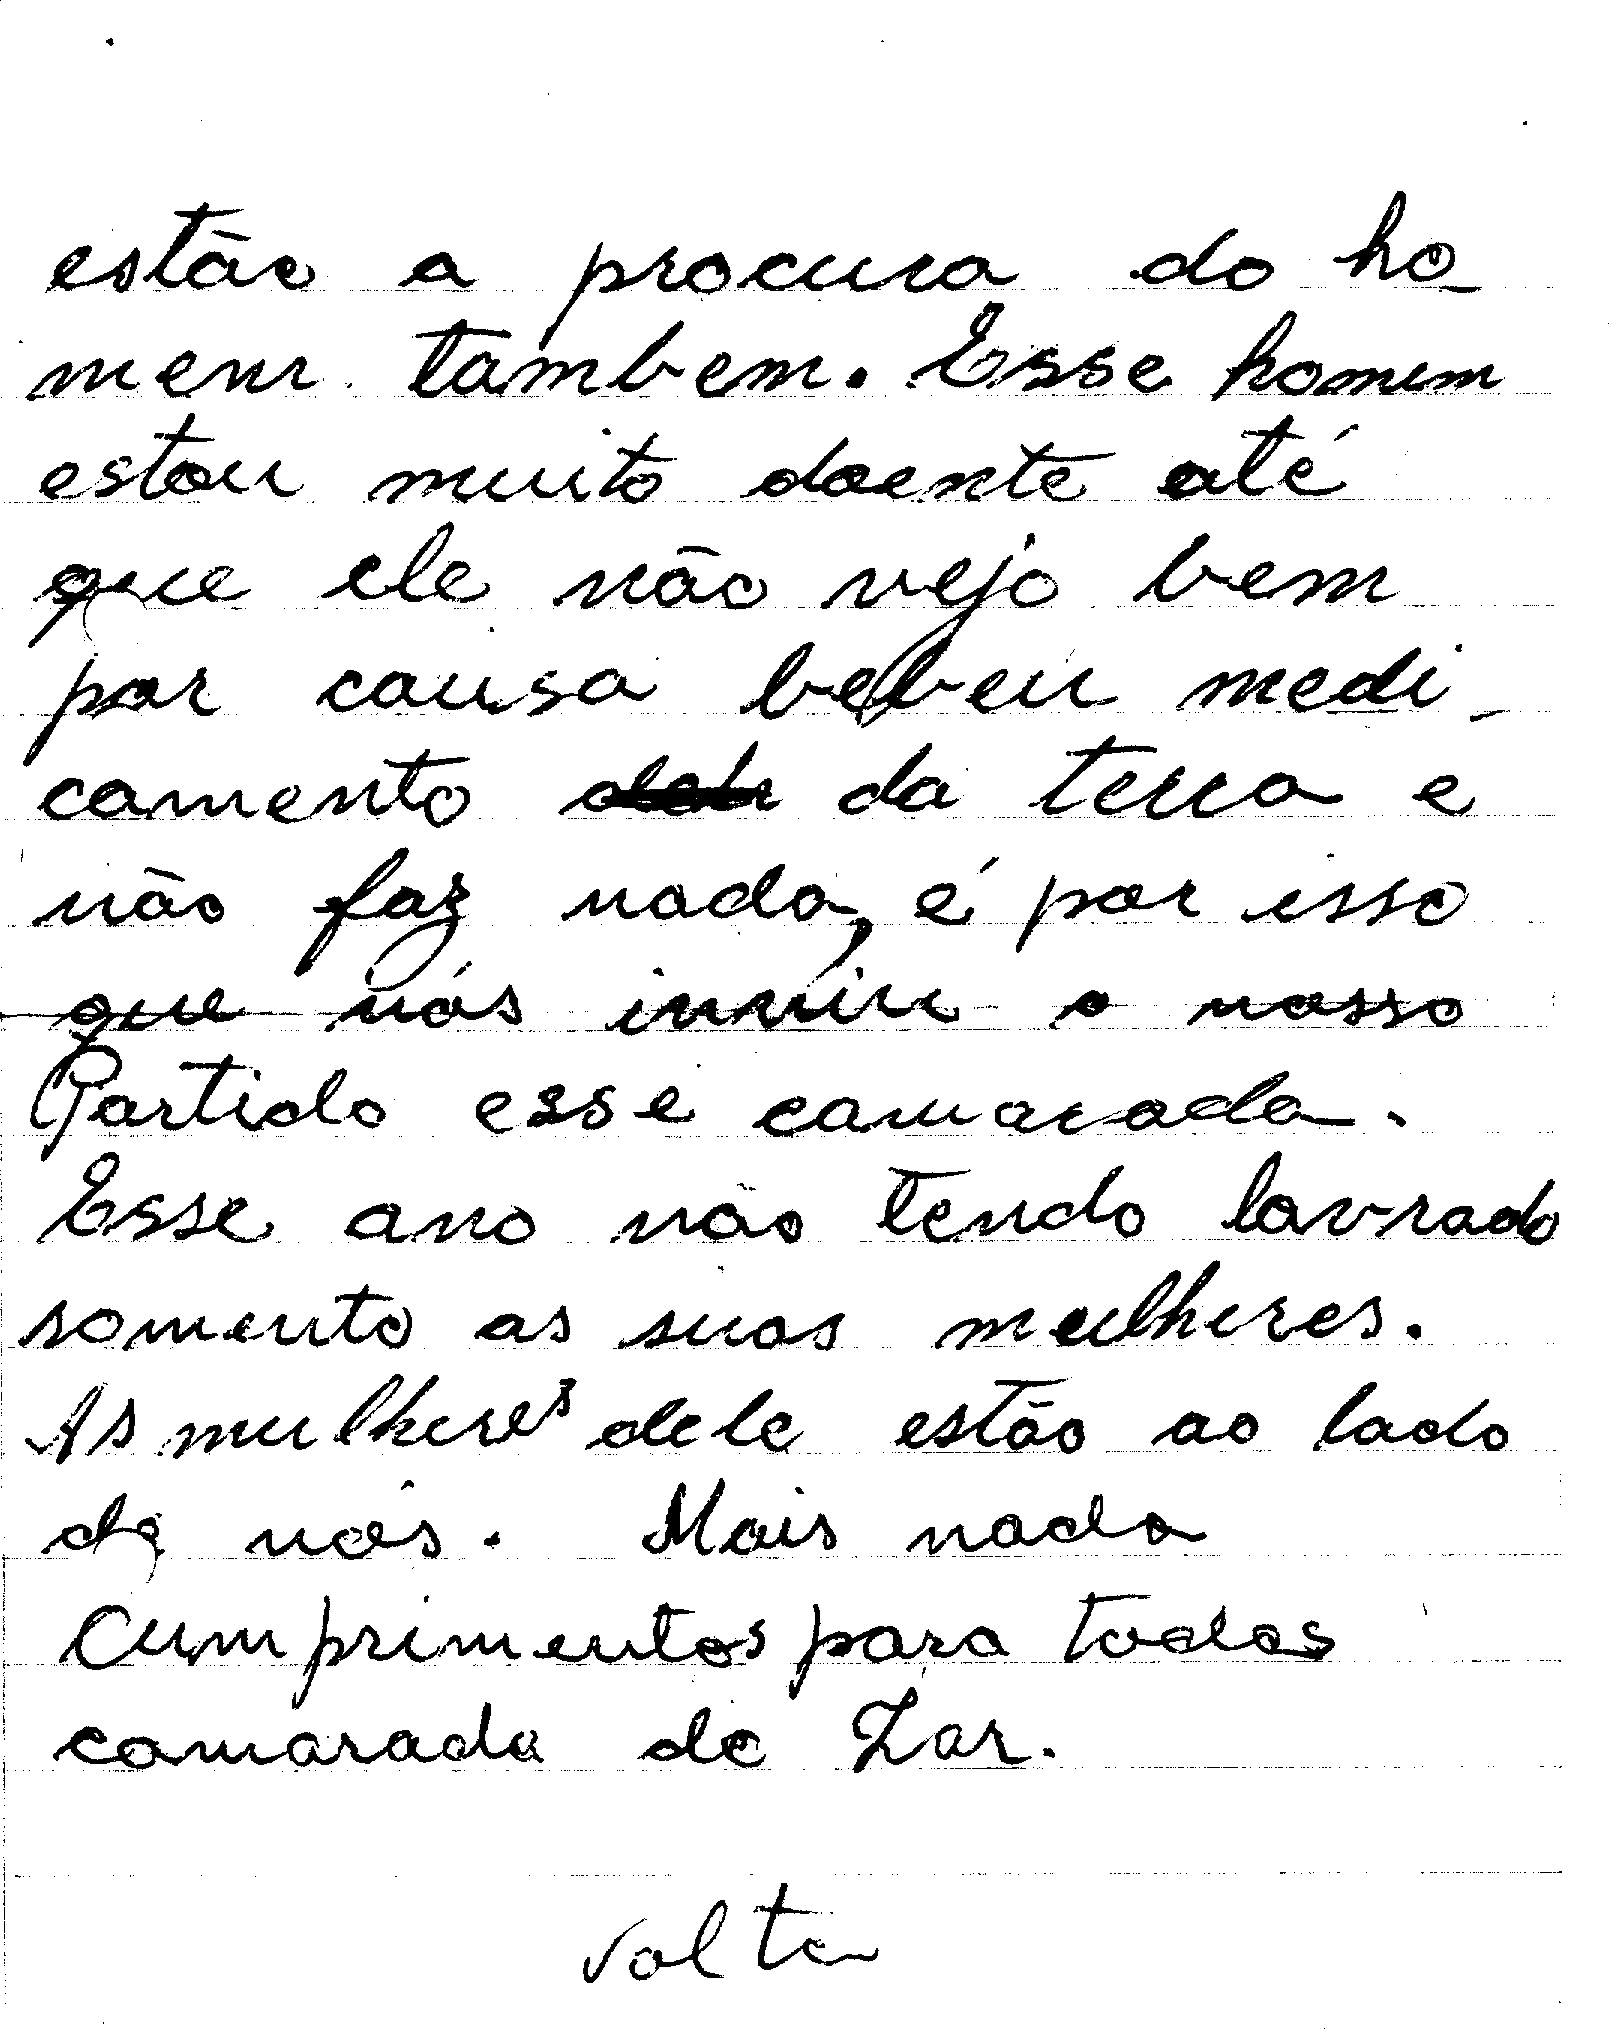 estão a procura do ho_
mem tambem. Esse homem
estou muito doente até
que ele não vejo bem
por causa bebeu medi_
camento da terra e
não faz nada, é por isso
que nós inviu o nosso
Partido esse camarada.
Esse ano não tendo lavrado
somento as suas mulheres.
As mulheres dele estão ao lado
de nós. Mais nada
Cumprimentos para todos
camarada de Zar.
volta